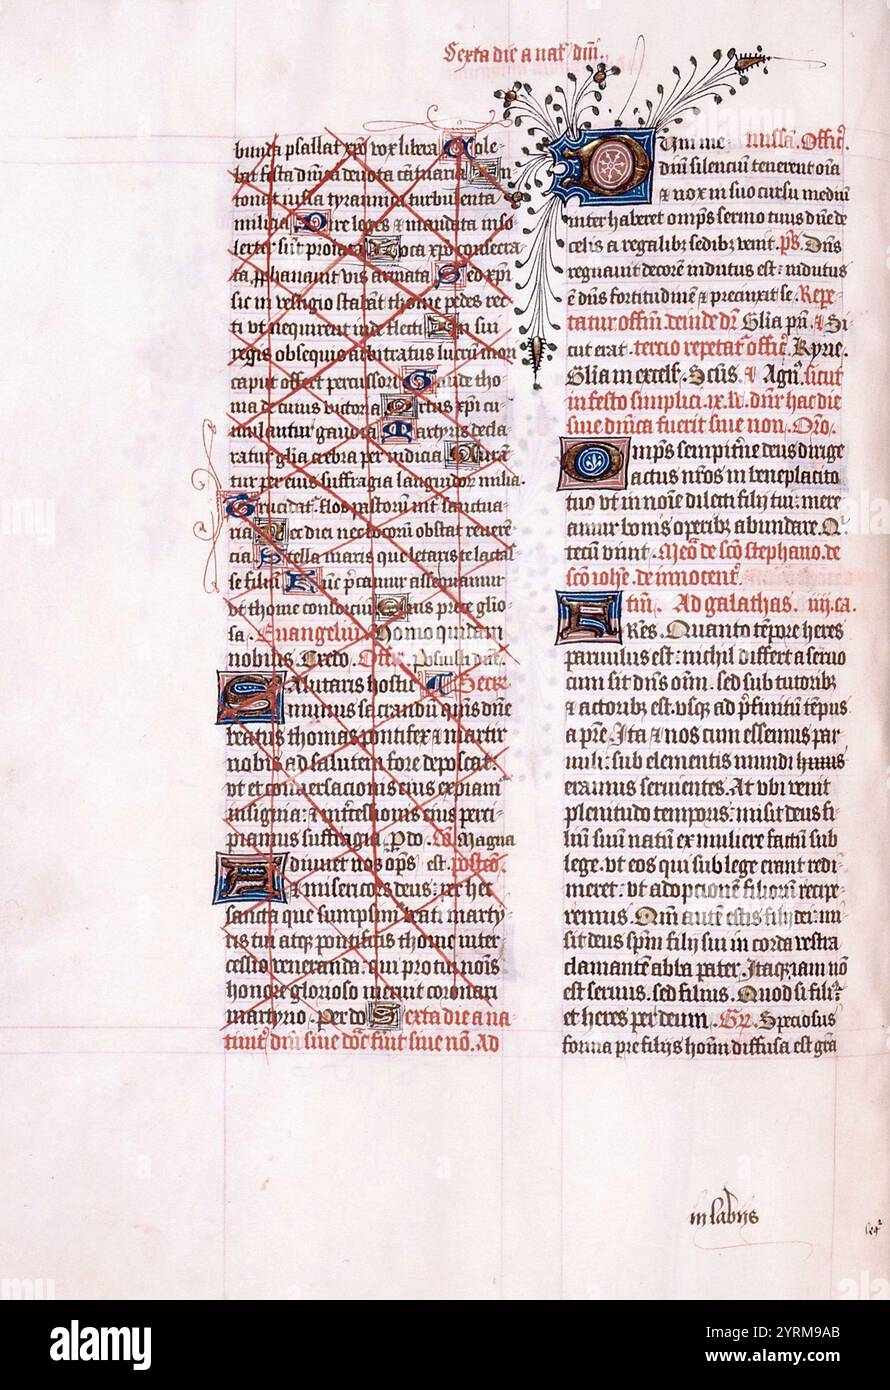 Sexta die a nat᷒ dm̄.
bunda psallat xp̄o vox libera Cole
bat festa dm̄ica deuota cātuaria In
tonat insta tyrannica turbulenta
milicia Dire leges & mandata inso
lerter sūt prolata Loca xp̄o consecra
ta p̱phanauit vis armata Sed xp̄i
sic in vestigio stabāt thome pedes rec
ti vt nequirent inde flecti In sui
regis obsequio arbitratus lucrū mori
caput offert percussori Gaude tho
ma de cuius victoria Ortus xp̄i cu
mulantur gaudia Martyris decla
ratur gl̄ia crebra per indicia Curēt̄
tur per eius suffragia languidor milia.
Trucidat᷒ flos pastorum in̄t sanctua
ria Nec diei nec locorū obstat reuerē
cia Stella maris que letaris te lactas
se filiū Fac p̄camur assequamur
vt thome consorciū Eius prece glio
sa. Euangeliū Homo quidam
nobilis. Credo. Offic᷒. Posuisti dn̄e.
Salutaris hostie Secre᷒.
munus sacrandū quis dn̄e
beatus thomas pontifex & martir
nobis ad salutem fore deposcat:
vt et conuersacionis eius expiam᷒
insignia: & int̄cessionis eius perci
piamus suffragia. P̱ do. Co. Magna
Adiuuet nos om̄ps est. postcō.
& misericors deus: per hec
sancta que sumpsim᷒ beati marty
ris tui atq̱ pontificis thome inter
cessio veneranda: qui pro tui nōis
honore glorioso meruit coronari
martyrio. Per do Sexta die a na
tiuit᷒ dm̄ siue dōīca fu᷒it siue nō. Ad
Dum me missā. Offic᷒.
diū silenciū tenerent oīa
& nox in suo cursu mediū
inter haberet om̄ps sermo tuus dn̄e de
celis a regalib᷒ sedib᷒ venit. p̄s. Dn̄s
regnauit decorē indutus est: indutus
ē dn̄s fortitudinē & precinxit se. Repe
tatur offm̄. deinde dr̄ Gl̄ia pr̄i. & Si
cut erat. tercio repetat᷒ offic᷒. Kyrie.
Gl̄ia in excels᷒. Sc̄us. & Agn᷒. sicut
in festo simplici .ix. lc̄. dicit᷒ hac die
siue dn̄ica fuerit siue non. Or̄o.
Om̄ps sempit̄ne deus dirige
actus nr̄os in beneplacito
tuo vt in noīe dilecti filij tui: mere
amur bonis operib᷒ abundare. Q᷒
tecū viuit. Meōr̄ de sc̄o stephano. de
sc̄o ioh̄e. de innocent᷒.
Frēs. Quanto tēpore heres
tim̄. Ad galathas. iiij. ca.
paruulus est: nichil differt a seruo
cum sit dn̄s oīm. sed sub tutorib᷒
& actorib᷒ est. vsq̱ ad p̄finitū tēpus
a pr̄e. Ita & nos cum essemus par
uuli: sub elementis mundi huius
eramus seruientes. At vbi venit
plenitudo temporis: misit deus fi
lium suū natū ex muliere factū sub
lege. vt eos qui sub lege erant redi
meret: vt adopcionē filiorū recipe
remus. Qm̄ autē estis filij dei: mi
sit deus sp̄m filij sui in corda vestra
clamantē abba pater. Itaq̱ iam nō
est seruus. sed filius. Quod si fili᷒
et heres per deum. Gr̄. Speciosus
forma pre filijs hoīm diffusa est grā
in labijs
alamy
Image ID: 2YRM9AB
www.alamy.com